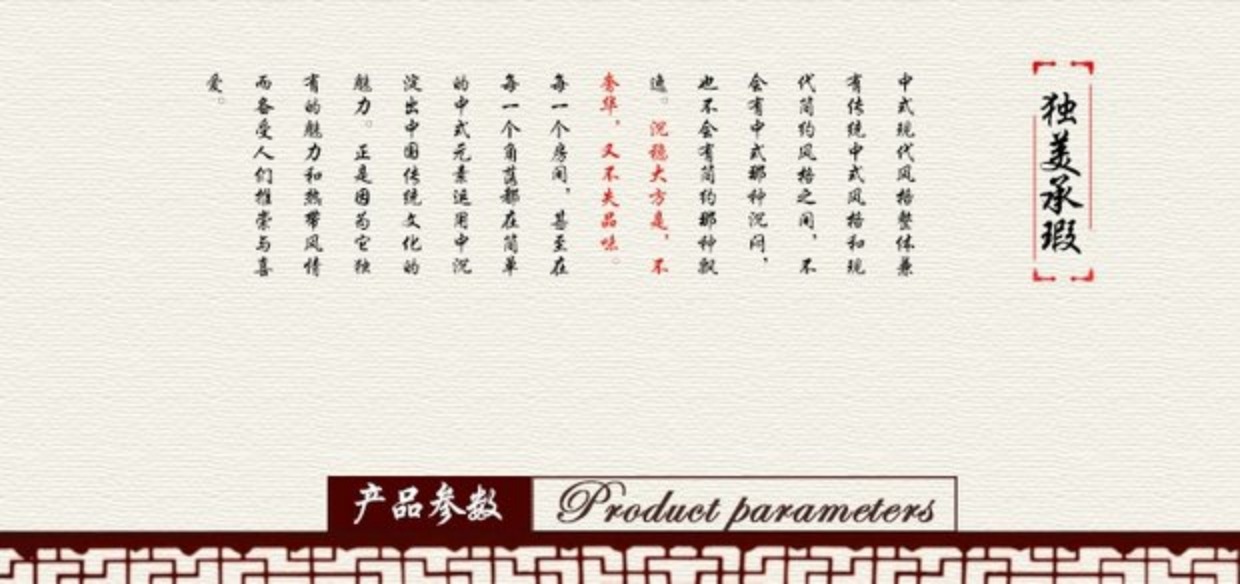 独美承瑕
中式现代风格整体兼
有传统中式风格和现
代简约风格之间，不
会有中式那种沉闷，
也不会有简约那种飘
逸。沉稳大方是，不
奢华，又不失品味。
每一个房间，甚至在
每一个角落都在简单
的中式元素运用中沉
淀出中国传统文化的
魅力。正是因为它独
有的魅力和热带风情
而备受人们推崇与喜
爱。
产品参数
Product parameters